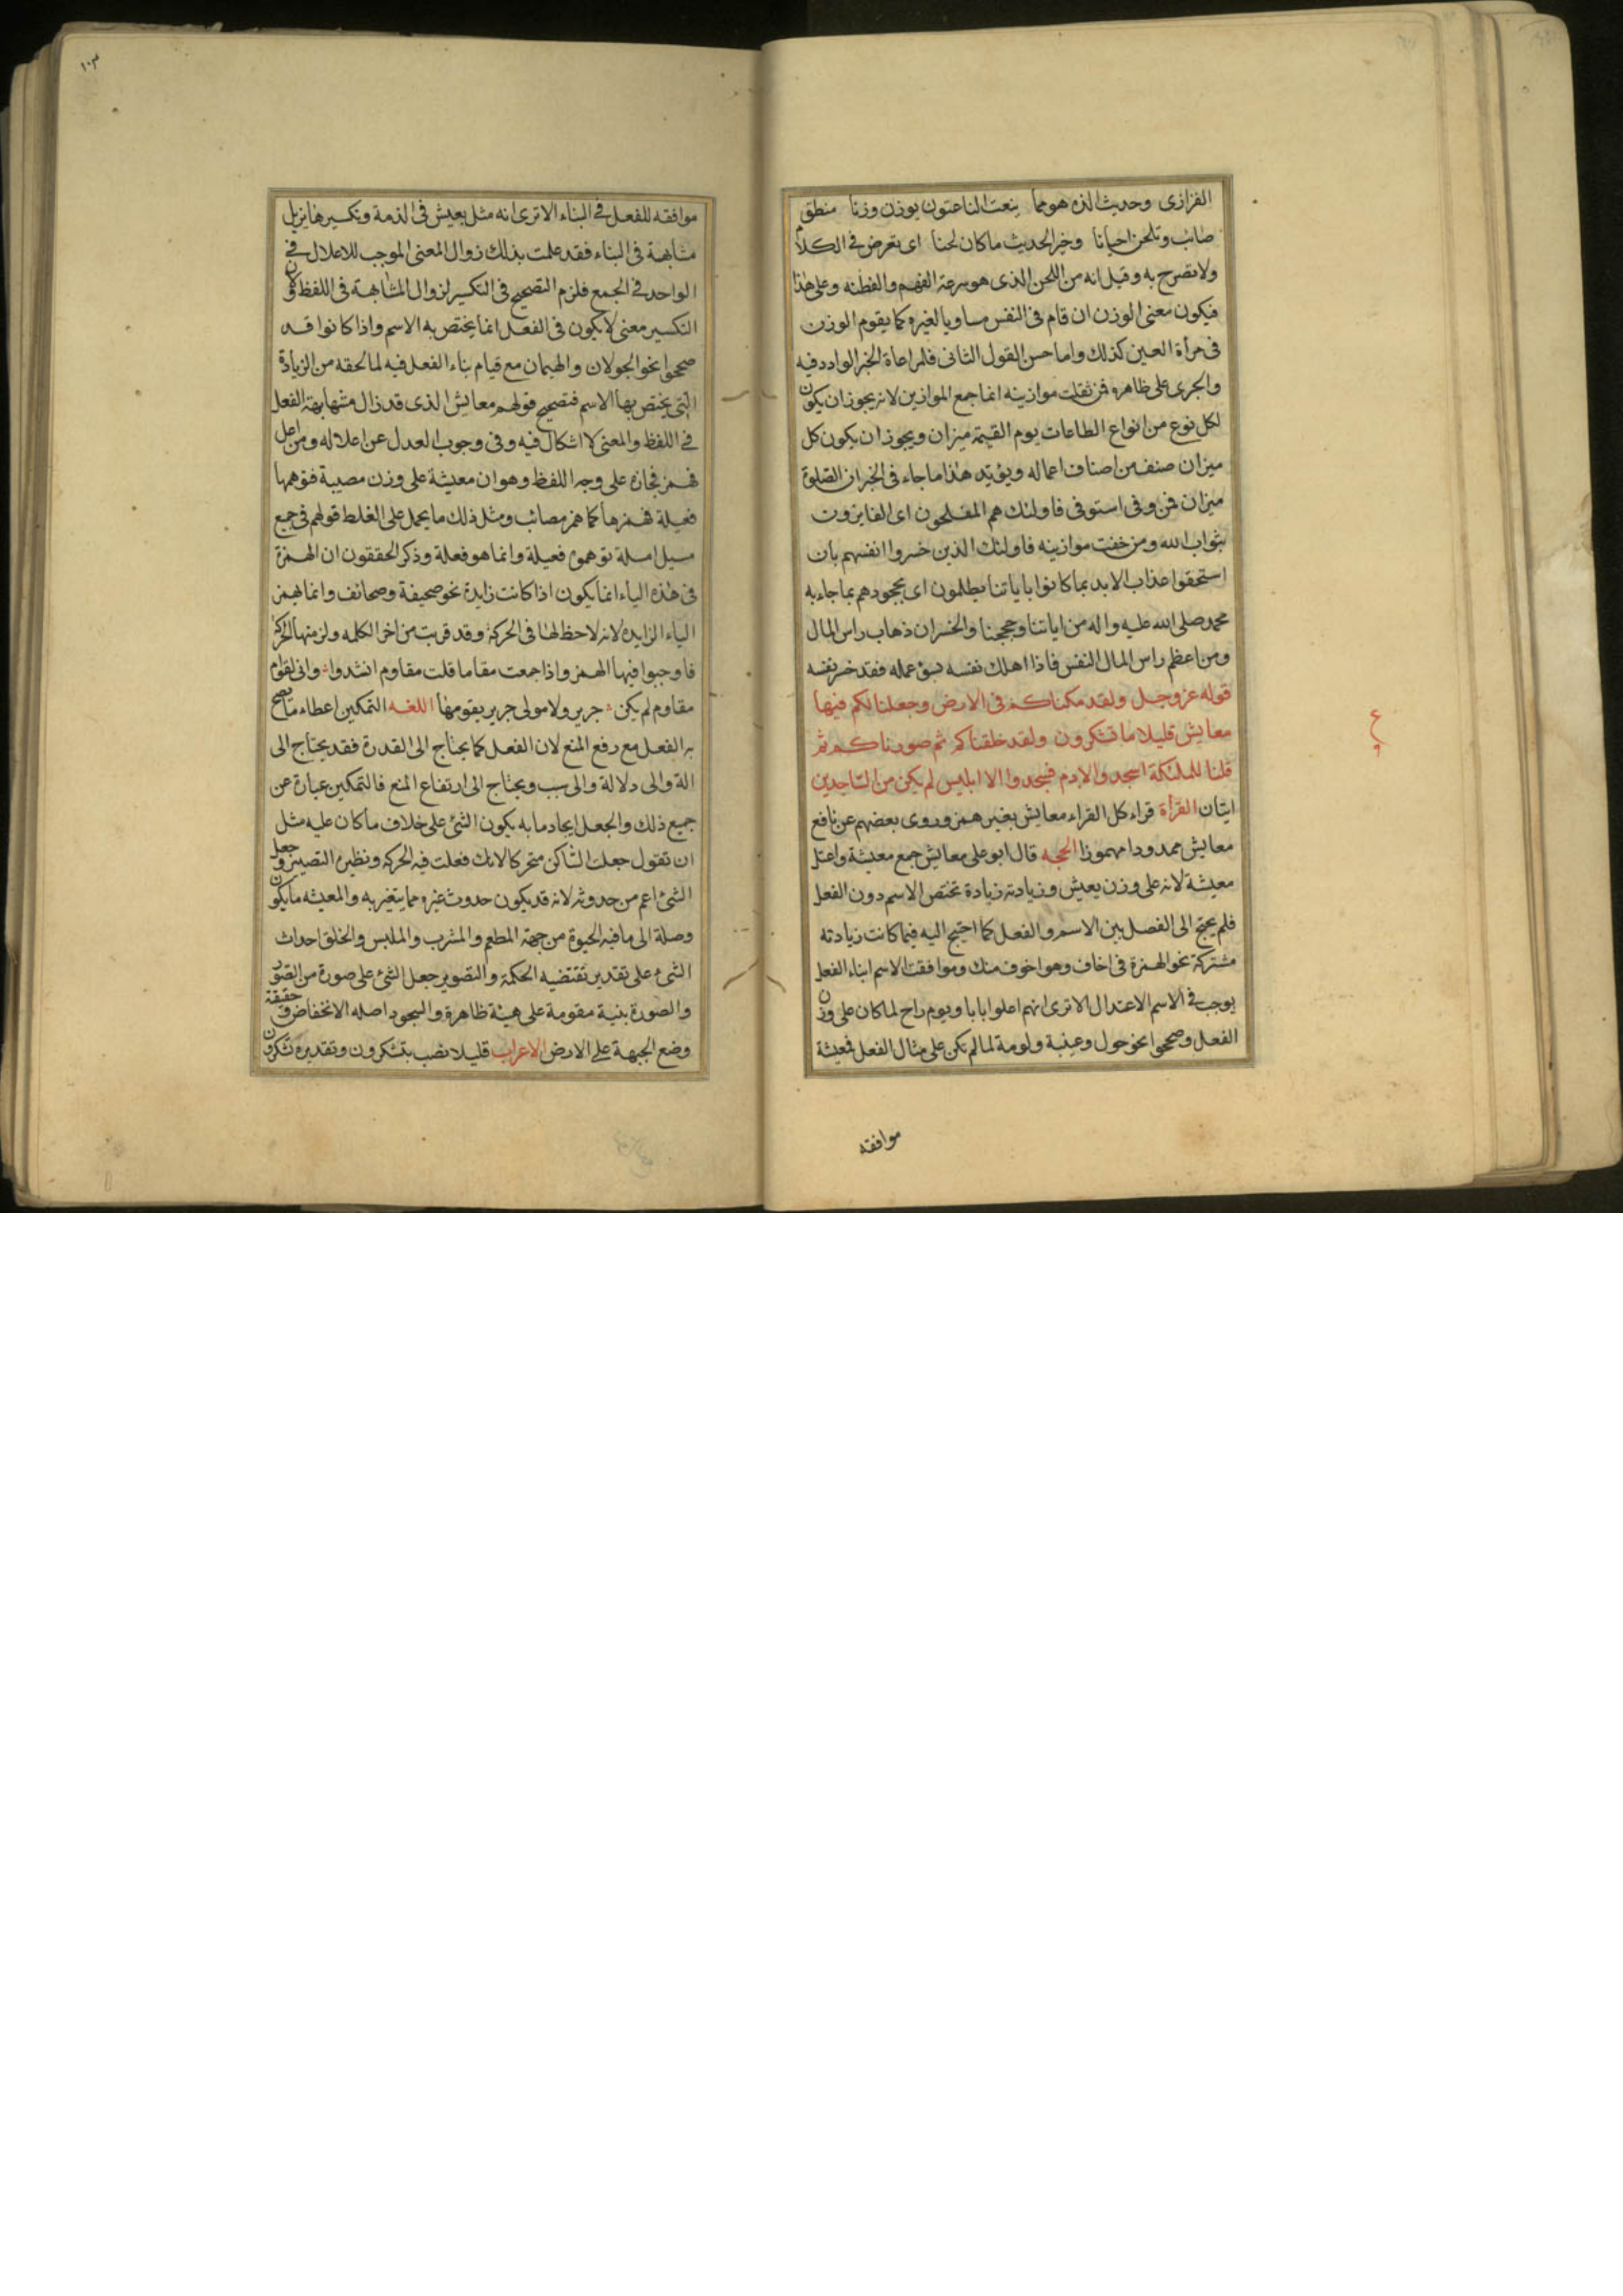 الفزازى وحديث الذه هو مما ينعت الناعتون بوزن وزنا منطق
صائب وتلحن احيانا وخير الحديث ما كان لحنا اى تعرض فى الكلام
ولا تصرح به وقيل انه من اللحن الذى هو سرعة الفهم والفطنه وعلى هذا
فيكون معنى الوزن ان قام فى النفس مساويا لغيره كما يقوم الوزن
فى مرأة العين كذلك واما حسن القول الثانى فلمراعاة الخبر الوارد فيه
والجرى على ظاهره فمن ثقلت موازينه انما جمع الموازين لانه يجوز ان يكون
لكل نوع من انواع الطاعات يوم القيمة ميزان ويجوز ان يكون كل
ميزان صنف من اصناف اعماله ويؤيد هذا ما جاء فى الخبر ان الصلوة
ميزان فمن وفى استوفى فاولئك هم المفلحون اى الفايزون
بثواب الله ومن خفت موازينه فاولئك الذين خسروا انفسهم بان
استحقوا عذاب الابد بما كانوا باياتنا يظلمون اى بجحودهم بما جاء به
محمد صلى الله عليه واله من اياتنا وحججنا والخسران ذهاب راس المال
ومن اعظم راس المال النفس فاذا اهلك نفسه بسوء عمله فقد خسر نفسه
قوله عز وجل ولقد مكناكم فى الارض وجعلنا لكم فيها
معايش قليلا ما تشكرون ولقد خلقناكم ثم صورناكم ثم
قلنا للملئكة اسجدوا لادم فسجدوا الا ابليس لم يكن من الساجدين
ايتان القرأة قراء كل القراء معايش بغير همز وروى بعضهم عن نافع
معايش ممدودا مهموزا الحجه قال ابو على معايش جمع معيشة واعتل
معيشة لانه على وزن يعيش وزيادته زيادة تختص الاسم دون الفعل
فلم يحتج الى الفصل بين الاسم والفعل كما احتيج اليه فيما كانت زيادته
مشتركة نحو الهمزة فى اخاف وهو اخوف منك وموافقت الاسم ابناء الفعل
يوجب فى الاسم الاعتدال الا ترى انهم اعلوا بابا ويوم راح لما كان على وزن
الفعل وصححوا نحو حول وعيبة ولومة لما لم يكن على مثال الفعل فمعيشة
موافقه
ع
١٠٣
موافقه للفعل فى البناء الا ترى انه مثل يعيش فى الذمة وتكسيرها يزيل
مشابهة فى البناء فقد علمت بذلك زوال المعنى الموجب للاعلال فى
الواحد فى الجمع فلزم التصحيح فى التكسير لزوال المشابهة فى اللفظ ولان
التكسير معنى لا يكون فى الفعل انما يختص به الاسم واذا كانوا قد
صححوا نحو الجولان والهيمان مع قيام بناء الفعل فيه لما لحقه من الزيادة
التى يختص بها الاسم فتصحيح قولهم معايش الذى قد زال مشابهة الفعل
فى اللفظ والمعنى لا اشكال فيه وفى وجوب العدل عن اعلاله ومن اعل
فهمز فمجازه على وجه اللفظ وهو ان معيشة على وزن مصيبة فتوهمها
فعيلة فهمزها كما همز مصائب ومثل ذلك ما يحمل على الغلط قولهم فى جمع
مسيل امسلة توهموه فعيلة وانما هو فعلة وذكر الحققون ان الهمزة
فى هذه الياء انما يكون اذا كانت زايدة نحو صحيفة وصحائف وانما يهمز
الياء الزايده لانه لا حظ لها فى الحركة وقد قربت من اخر الكلمه ولزمتها الحركة
فاوجبوا فيها الهمز واذا جمعت مقاما قلت مقاوم انشدوا وانى لقوام
مقاوم لم يكن جرير ولا مولى جرير يقومها اللغه التمكين اعطاء ما يصح
به الفعل مع رفع المنع لان الفعل كما يحتاج الى القدرة فقد يحتاج الى
الة والى دلالة والى سبب ويحتاج الى ارتفاع المنع فالتمكين عبارة عن
جميع ذلك والجعل ايجاد ما به يكون الشئ على خلاف ما كان عليه مثل
ان تقول جعلت الساكن متحركا لانك فعلت فيه الحركه ونظيره التصيير وجعل
الشئ اعم من حدوثه لانه قد يكون حدوث غيره مما يتغير به والمعيشه ما يكون
وصلة الى ما فيه الحيوة من جهة المطعم والمشرب والملبس والخلق احداث
الشئ على تقدير تقتضيه الحكمة والتصوير جعل الشئ على صورة من الصور
والصورة بنية مقومة على هيئة ظاهرة والسجود اصله الانخفاض وحقيقة
وضع الجبهة على الارض الاعراب قليلا نصب بتشكرون وتقديره تشكرون